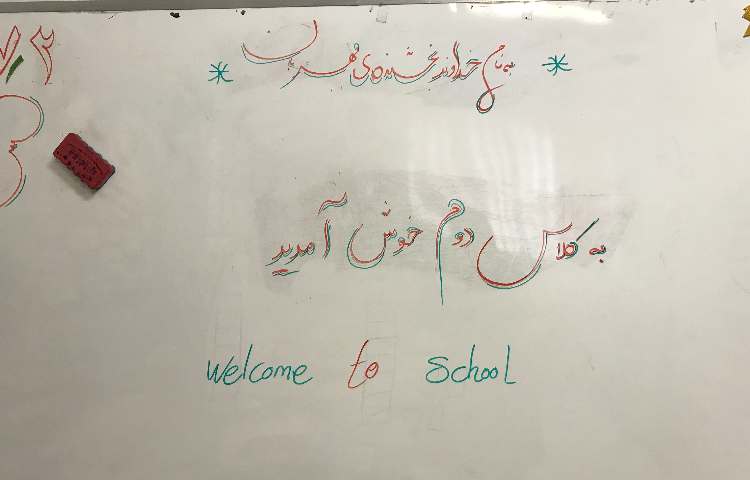 به نام خداوند بخشنده‌ی مهربان
به کلاس دوم خوش آمدید
welcome to School